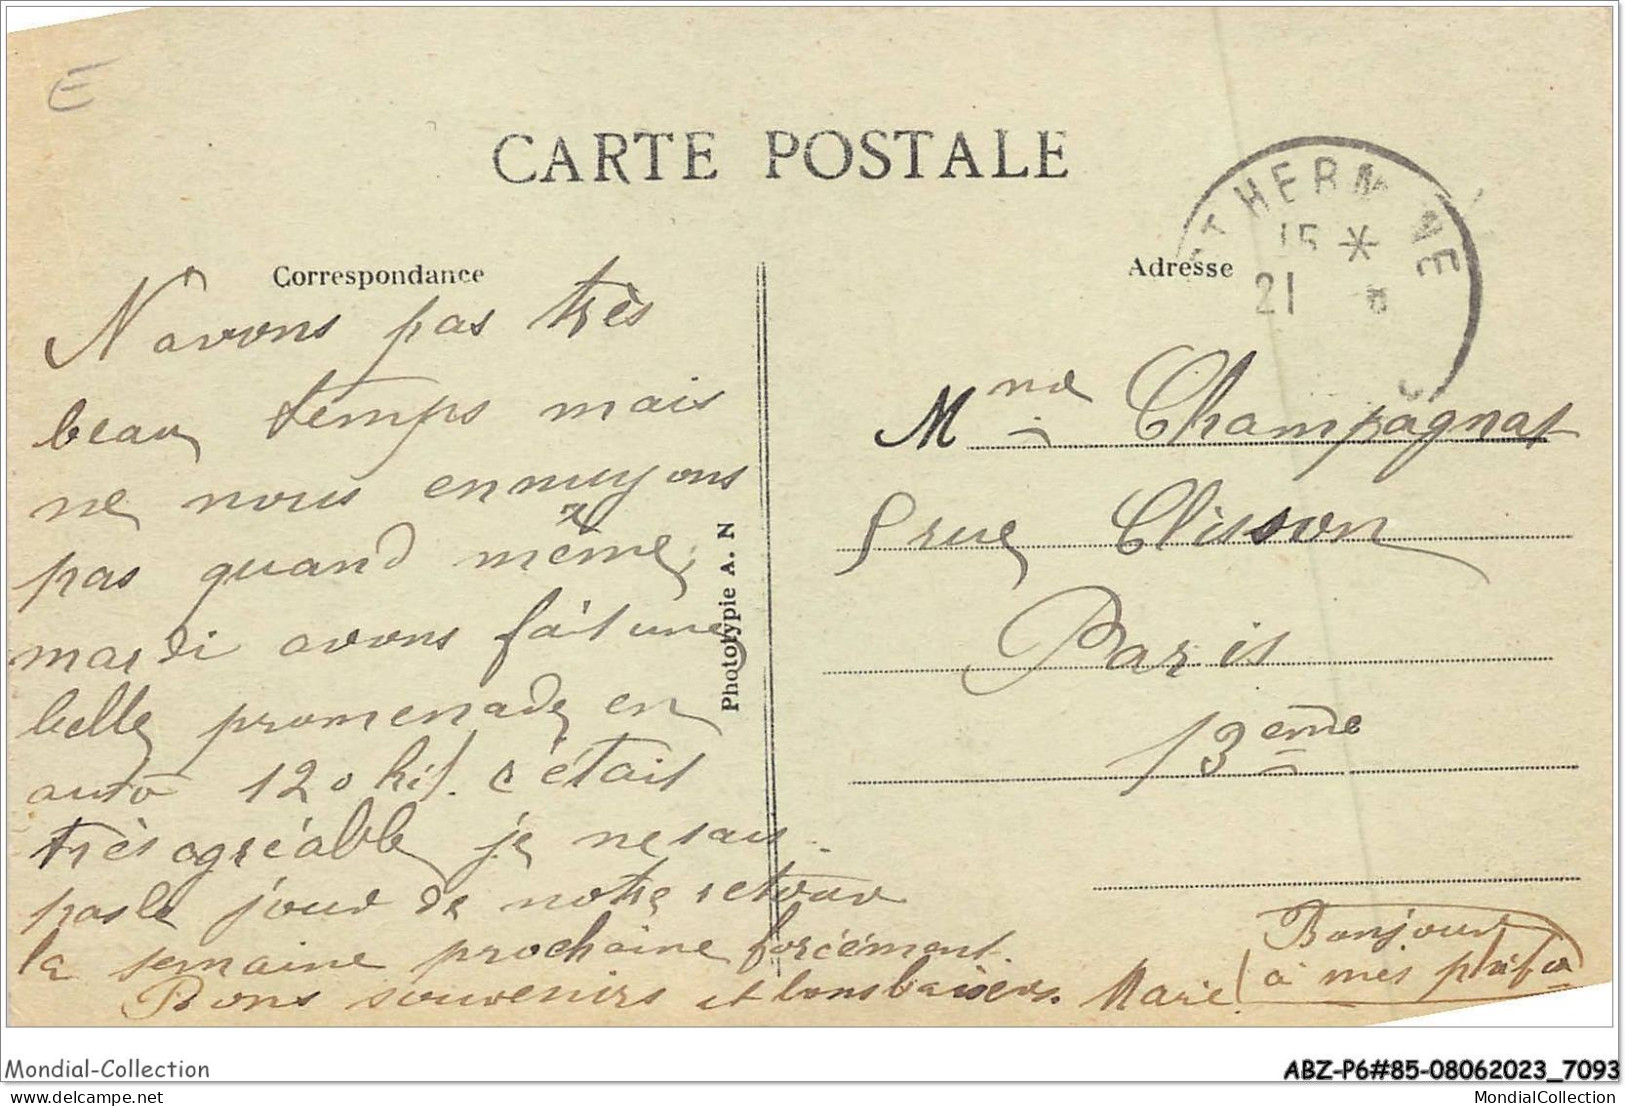 E
CARTE POSTALE
Correspondance
Adresse
Phototypie A. N
HERMINE
15 *
21
N'avons pas très
beau temps mais
ne nous ennuyons
pas quand même,
mardi avons fait une
belle promenade en
auto 120 kil. c'était
très agréable je ne sais
pas le jour de notre retour
la semaine prochaine forcément.
Bons souvenirs et bons baisers. Marie
Mme Champagnat
rue Clisson
Paris
13ème
Bonjour
à mes
Mondial-Collection
ABZ-P6#85-08062023_7093
delcampe.net
MondialCollection